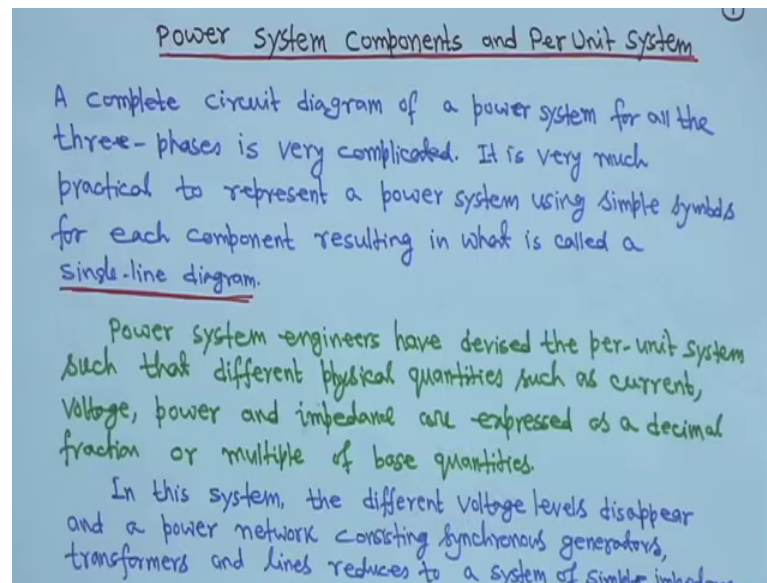 1
Power System Components and Per Unit System
A complete circuit diagram of a power system for all the
three-phases is very complicated. It is very much
practical to represent a power system using simple symbols
for each component resulting in what is called a
single-line diagram.
Power system engineers have devised the per-unit system
such that different physical quantities such as current,
voltage, power and impedance are expressed as a decimal
fraction or multiple of base quantities.
In this system, the different voltage levels disappear
and a power network consisting synchronous generators,
transformers and lines reduces to a system of simple